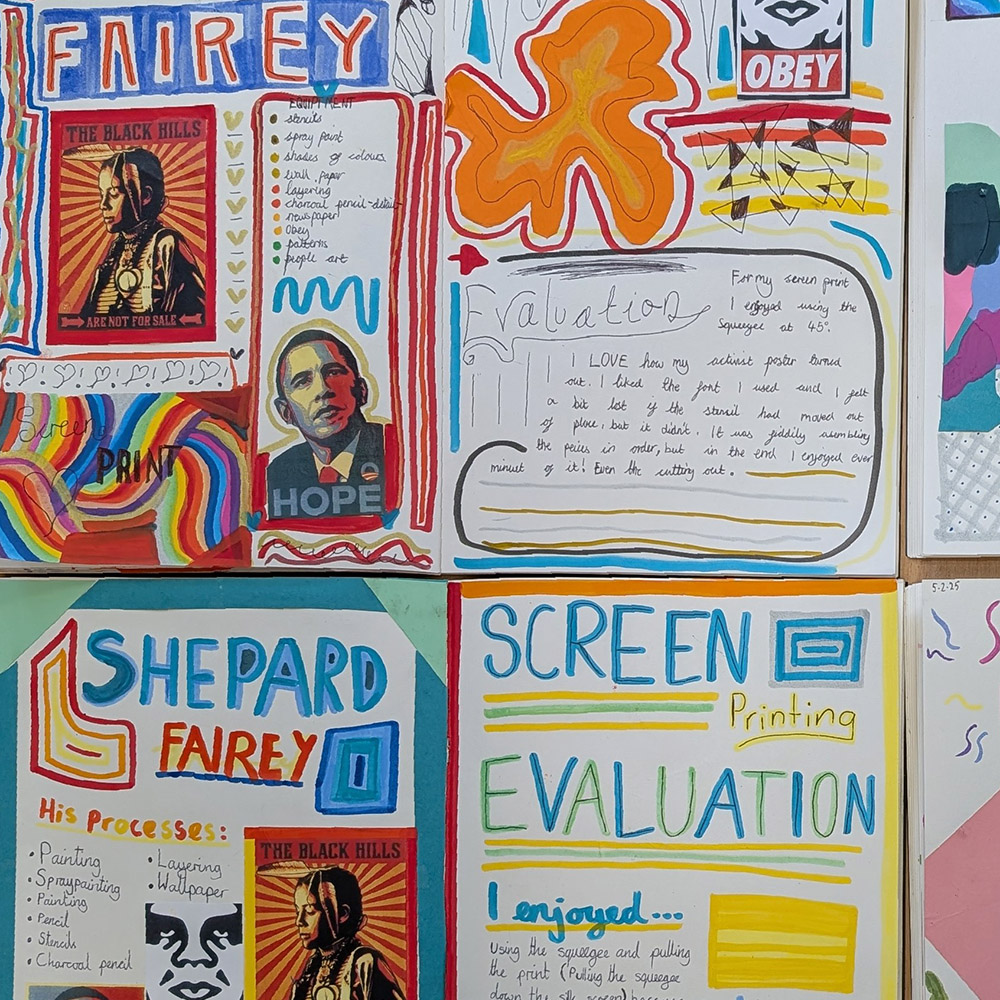 FAIREY
THE BLACK HILLS
ARE NOT FOR SALE
EQUIPMENT
stencils
spray paint
shades of colours
wall paper
layering
charcoal pencil-details
newspaper
Obey
patterns
people art
HOPE
Screen
PRINT
OBEY
Evaluation
For my screen print
I enjoyed using the
Squeegee at 45°.
I LOVE how my activist poster turned
out. I liked the font I used and I felt
a bit lost if the stencil had moved out
of place, but it didn't. It was fiddily assembling
the peices in order, but in the end I enjoyed ever
minuet of it! Even the cutting out.
SHEPARD
FAIREY
His Processes:
• Painting
• Spraypainting
• Painting
• Pencil
• Stencils
• Charcoal pencil
• Layering
• Wallpaper
THE BLACK HILLS
SCREEN
Printing
EVALUATION
I enjoyed...
Using the squeegee and pulling
the print (Pulling the squeegee
down the silk screen) because
5-2-25